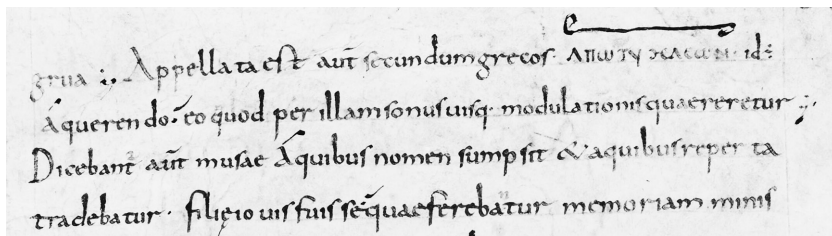 grua ⁏ Appellata est aut̄ secundum grecos· ΑΠωΤΥ ΧΑCωΝ· id÷
Aquerendo· eo quod per illam sonus uisq· modulationis quaereretur ⁏
Dicebant̄ aut̄ musae Aquibus nomen sumpsit & aquibus reperta
tradebatur· filię iouis fuisse· quae ferebatur memoriam minis